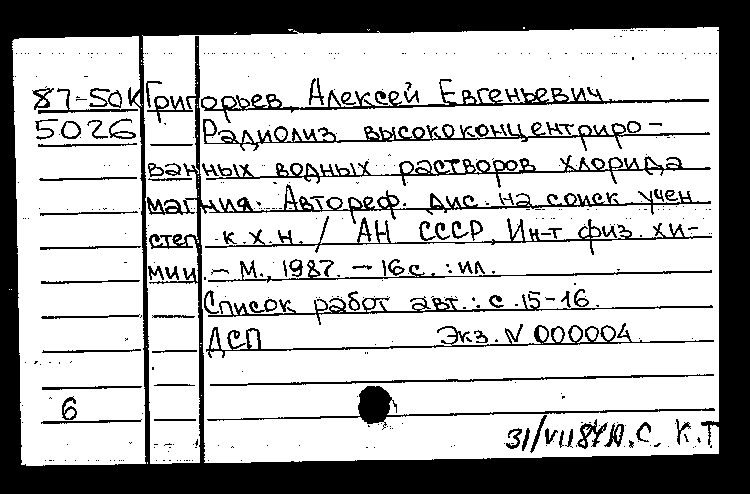 87-50К Григорьев, Алексей Евгеньевич
5026 Радиолиз высококонцентриро-
ванных водных растворов хлорида
магния: Автореф. дис. на соиск учен
степ к.х.н. / АН СССР, Ин-т физ. хи-
мии. - М., 1987. - 16с. : ил.
Список работ авт.: с. 15-16.
ДСП Экз. N 000004
6
31/VII К.Т